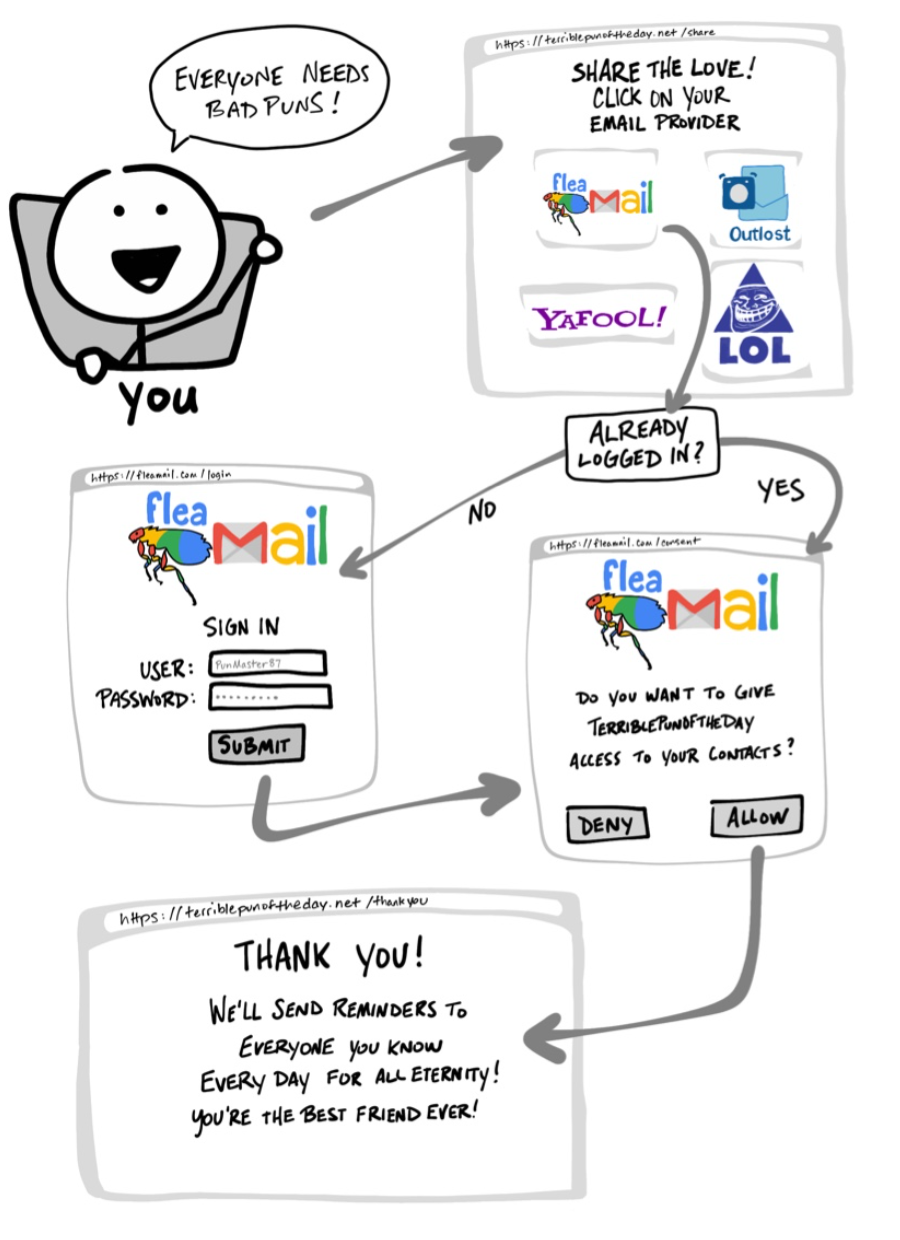 EVERYONE NEEDS
BAD PUNS!
You
https://terriblepunoftheday.net/share
SHARE THE LOVE!
CLICK ON YOUR
EMAIL PROVIDER
flea
Mail
Outlost
YAFOOL!
LOL
ALREADY
LOGGED IN?
NO
YES
https://fleamail.com/login
flea
Mail
SIGN IN
USER: PunMaster87
PASSWORD: •••••••••
SUBMIT
https://fleamail.com/consent
flea
Mail
DO YOU WANT TO GIVE
TERRIBLEPUNOFTHEDAY
ACCESS TO YOUR CONTACTS?
DENY
ALLOW
https://terriblepunoftheday.net/thankyou
THANK YOU!
WE'LL SEND REMINDERS TO
EVERYONE YOU KNOW
EVERY DAY FOR ALL ETERNITY!
YOU'RE THE BEST FRIEND EVER!